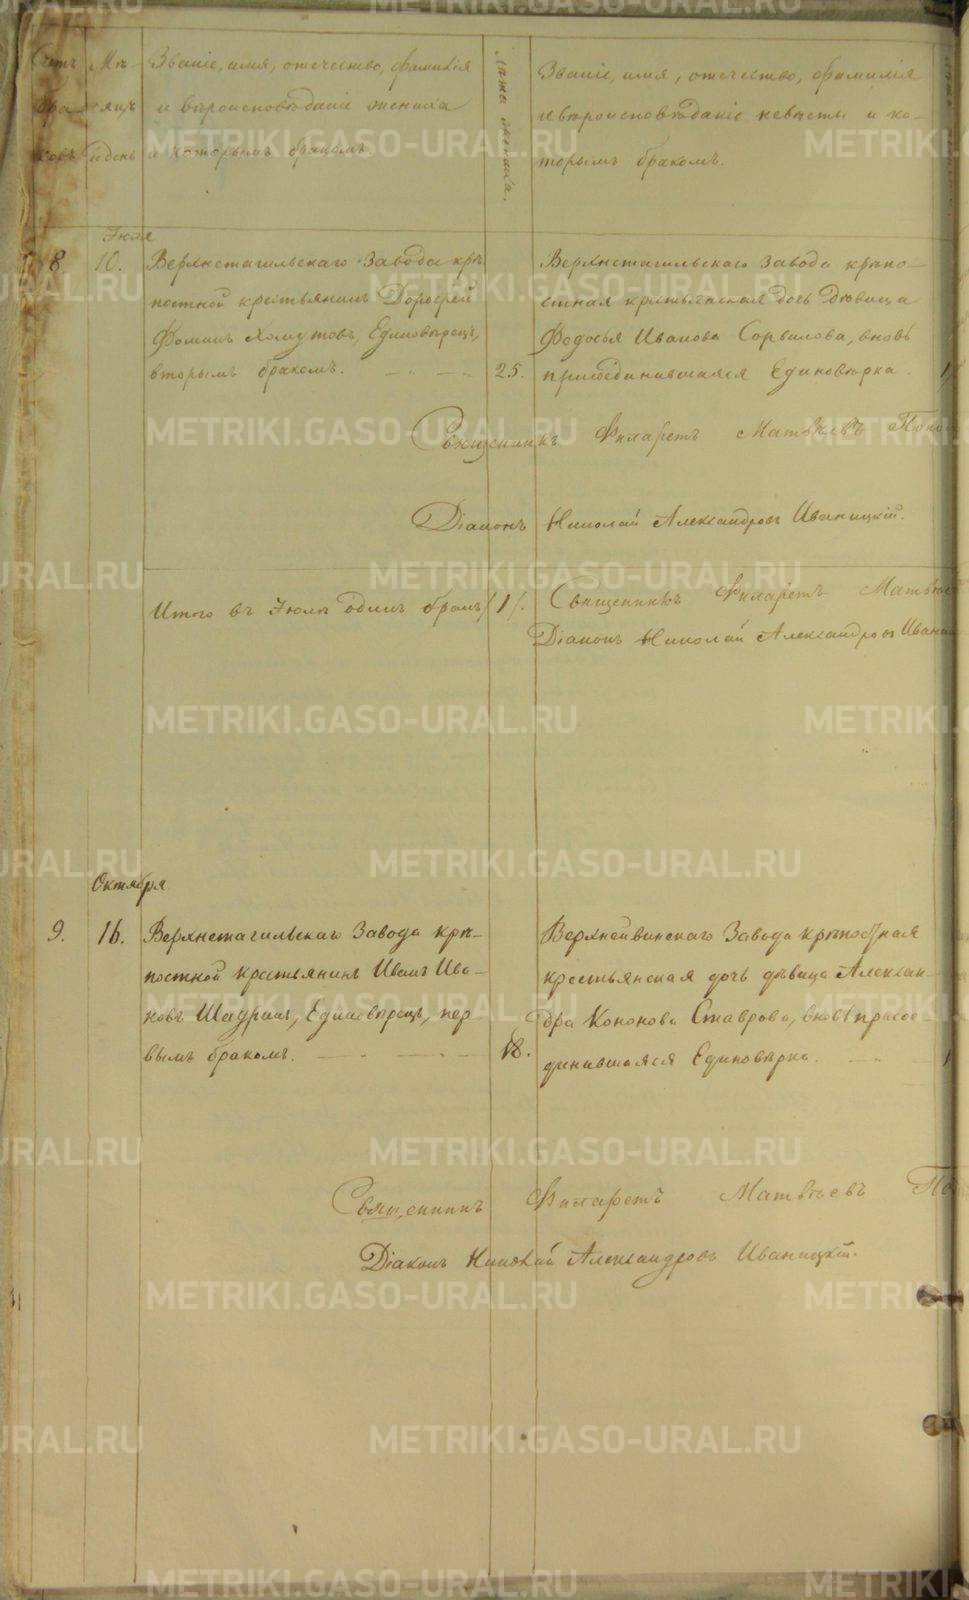 Счетъ
бра-
ковъ
Мѣ-
сяцъ
и день
Званіе, имя, отечество, фамилія
и вѣроисповѣданіе жениха
и которымъ бракомъ.
Лѣта жениха.
Званіе, имя, отечество, фамилія
и вѣроисповѣданіе невѣсты и ко-
торымъ бракомъ.
Іюля
8
10.
Верхнетагильскаго Завода крѣ-
постной крестьянинъ Дорофей
Фоминъ Хомутовъ, Единовѣрецъ,
вторымъ бракомъ.
25.
Верхнетагильскаго Завода крѣпо-
стная крестьянская дочь дѣвица
Федосья Иванова Сорвилова, вновь
присоединившаяся Единовѣрка.
Священникъ Филаретъ Матвѣевъ
Діаконъ Николай Александровъ Иваницкій.
Итого въ Іюлѣ одинъ бракъ /1/.
Священникъ Филаретъ
Діаконъ Николай Александровъ
Октября
9.
16.
Верхнетагильскаго Завода крѣ-
постной крестьянинъ Иванъ Ива-
новъ Шадринъ, Единовѣрецъ, пер-
вымъ бракомъ.
18.
Верхнейвинскаго Завода крѣпостная
крестьянская дочь дѣвица Алексан-
дра Кононова Ставрова, вновь присое-
динившаяся Единовѣрка.
Священникъ Филаретъ Матвѣевъ
Діаконъ Николай Александровъ Иваницкій.
METRIKI.GASO-URAL.RU